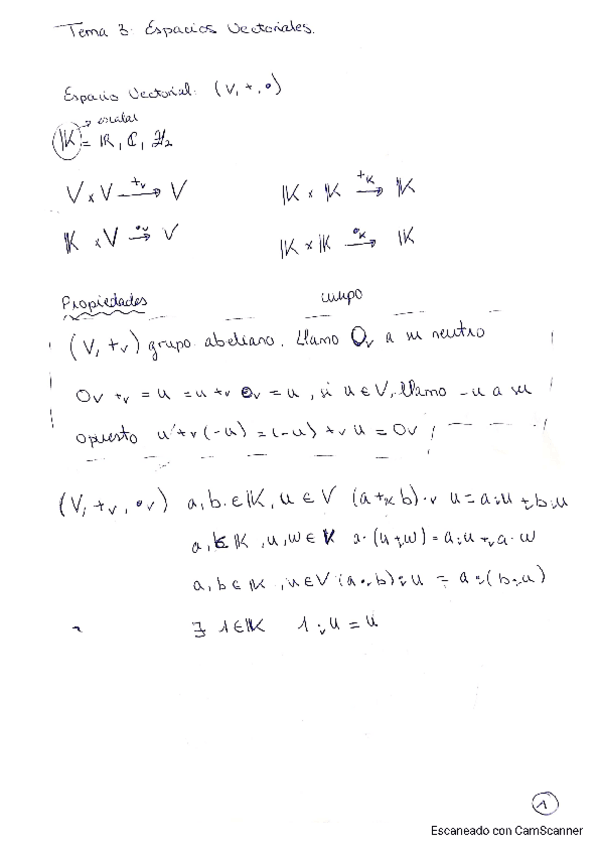 Tema 3: Espacios Vectoriales.
Espacio Vectorial: (V, +, •)
→ escalar
𝕂 = ℝ, ℂ, ℤ₂
V × V —+ᵥ→ V    𝕂 × 𝕂 —+_𝕂→ 𝕂
𝕂 × V —•ᵥ→ V    𝕂 × 𝕂 —•_𝕂→ 𝕂
Propiedades    cuerpo
(V, +ᵥ) grupo abeliano. Llamo 0ᵥ a su neutro
0ᵥ +ᵥ = u = u +ᵥ 0ᵥ = u, si u ∈ V, llamo -u a su
opuesto u +ᵥ (-u) = (-u) +ᵥ u = 0ᵥ
(V, +ᵥ, •ᵥ) a, b ∈ 𝕂, u ∈ V (a +_𝕂 b) ·ᵥ u = a ·ᵥ u +ᵥ b ·ᵥ u
a, ∈ 𝕂, u, w ∈ V a · (u +ᵥ w) = a ·ᵥ u +ᵥ a · w
a, b ∈ 𝕂, u ∈ V (a · b) ·ᵥ u = a ·ᵥ (b ·ᵥ u)
∃ 1 ∈ 𝕂 1 ·ᵥ u = u
1
Escaneado con CamScanner